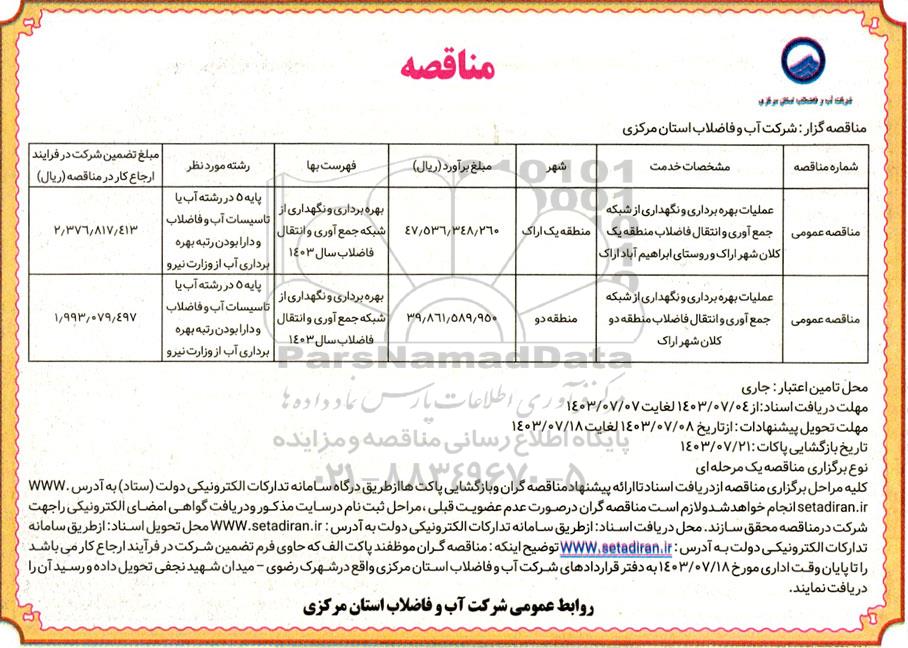 مناقصه
شرکت آب و فاضلاب استان مرکزی
مناقصه گزار : شرکت آب و فاضلاب استان مرکزی
شماره مناقصه | مشخصات خدمت | شهر | مبلغ برآورد (ریال) | فهرست بها | رشته مورد نظر | مبلغ تضمین شرکت در فرایند ارجاع کار در مناقصه (ریال)
مناقصه عمومی | عملیات بهره برداری و نگهداری از شبکه جمع آوری و انتقال فاضلاب منطقه یک کلان شهر اراک و روستای ابراهیم آباد اراک | منطقه یک اراک | ۴۷٫۵۳۶٫۳۴۸٫۲۶۰ | بهره برداری و نگهداری از شبکه جمع آوری و انتقال فاضلاب سال ۱۴۰۳ | پایه ۵ در رشته آب یا تاسیسات آب و فاضلاب و دارا بودن رتبه بهره برداری آب از وزارت نیرو | ۲٫۳۷۶٫۸۱۷٫۴۱۳
مناقصه عمومی | عملیات بهره برداری و نگهداری از شبکه جمع آوری و انتقال فاضلاب منطقه دو کلان شهر اراک | منطقه دو | ۳۹٫۸۶۱٫۵۸۹٫۹۵۰ | بهره برداری و نگهداری از شبکه جمع آوری و انتقال فاضلاب سال ۱۴۰۳ | پایه ۵ در رشته آب یا تاسیسات آب و فاضلاب و دارا بودن رتبه بهره برداری آب از وزارت نیرو | ۱٫۹۹۳٫۰۷۹٫۴۹۷
ParsNamadData
مرکز فرآوری اطلاعات پارس نماد داده ها
پایگاه اطلاع رسانی مناقصه و مزایده
۰۲۱-۸۸۳۴۹۶۷۰-۵
محل تامین اعتبار : جاری
مهلت دریافت اسناد: از ۱۴۰۳/۰۷/۰۴ لغایت ۱۴۰۳/۰۷/۰۷
مهلت تحویل پیشنهادات : از تاریخ ۱۴۰۳/۰۷/۰۸ لغایت ۱۴۰۳/۰۷/۱۸
تاریخ بازگشایی پاکات : ۱۴۰۳/۰۷/۲۱
نوع برگزاری مناقصه یک مرحله ای
کلیه مراحل برگزاری مناقصه از دریافت اسناد تا ارائه پیشنهاد مناقصه گران و بازگشایی پاکت ها از طریق درگاه سامانه تدارکات الکترونیکی دولت (ستاد) به آدرس .WWW
setadiran.ir انجام خواهد شد و لازم است مناقصه گران در صورت عدم عضویت قبلی ، مراحل ثبت نام در سایت مذکور و دریافت گواهی امضای الکترونیکی را جهت
شرکت در مناقصه محقق سازند. محل دریافت اسناد: از طریق سامانه تدارکات الکترونیکی دولت به آدرس : WWW.setadiran.ir محل تحویل اسناد: از طریق سامانه
تدارکات الکترونیکی دولت به آدرس : WWW.setadiran.ir توضیح اینکه : مناقصه گران موظفند پاکت الف که حاوی فرم تضمین شرکت در فرآیند ارجاع کار می باشد
را تا پایان وقت اداری مورخ ۱۴۰۳/۰۷/۱۸ به دفتر قراردادهای شرکت آب و فاضلاب استان مرکزی واقع در شهرک رضوی – میدان شهید نجفی تحویل داده و رسید آن را
دریافت نمایند.
روابط عمومی شرکت آب و فاضلاب استان مرکزی